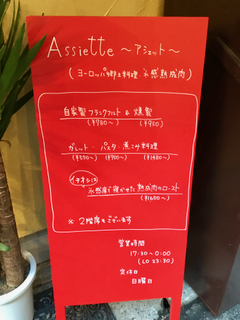 Assiette ～アシェット～
(ヨーロッパ郷土料理・氷感熟成肉)
自家製フランクフルト & 燻製
(¥780～) (¥980)
ガレット・パスタ・煮こみ料理
(¥550～ ¥900～ ¥1480～)
イチオシ
氷感庫で寝かせた熟成肉のロースト
(¥1680～)
※ 2階席もございます
営業時間
17:30～0:00
(LO 23:30)
定休日
日曜日